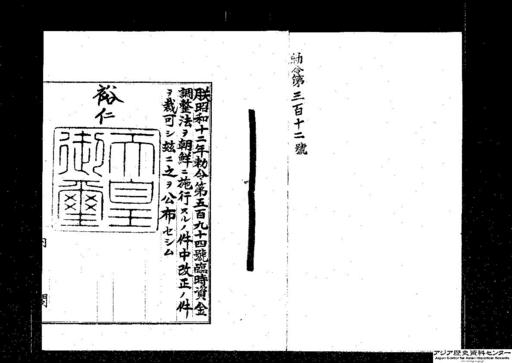 勅令第三百十二號
朕昭和十二年勅令第五百九十四號臨時資金
調整法ヲ朝鮮ニ施行スルノ件中改正ノ件
ヲ裁可シ玆ニ之ヲ公布セシム
裕仁
天皇
御璽
内閣
アジア歴史資料センター
Japan Center for Asian Historical Records